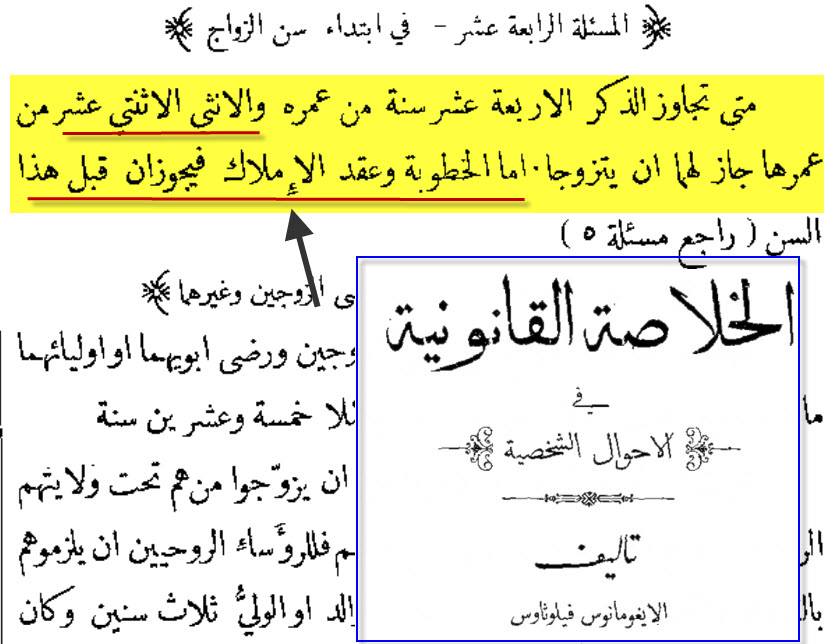 المسئلة الرابعة عشر – في ابتداء سن الزواج
متي تجاوز الذكر الاربعة عشر سنة من عمره والانثى الاثنتي عشر من
عمرها جاز لهما ان يتزوجا. اما الخطوبة وعقد الإملاك فيجوزان قبل هذا
السن ( راجع مسئلة ٥ )
الزوجين وغيرها
وجين ورضى ابويهما او اوليائهما
ما
خمسة وعشرين سنة
ان يزوّجوا من هم تحت ولايتهم
فللرؤَساء الروحيين ان يلزموهم
او الوليُّ ثلاث سنين وكان
الخلاصة القانونية
في
الاحوال الشخصية
تاليف
الايغومانوس فيلوثاوس